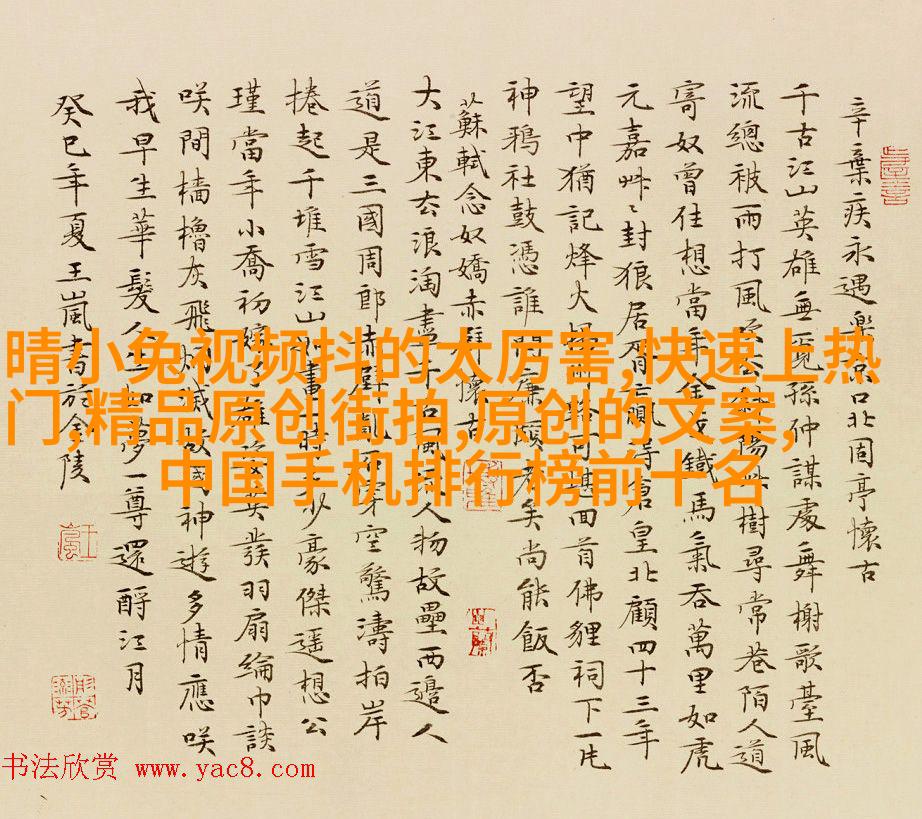 辛棄疾永遇樂京口北固亭懷古
千古江山英雄無覓孫仲謀處舞榭歌臺風
流總被雨打風吹去斜陽艸樹尋常巷陌人道
寄奴曾住想當年金戈鐵馬氣吞萬里如虎
元嘉艸〻封狼居胥贏得倉皇北顧四十三年
望中猶記烽火揚州路可堪回首佛貍祠下一片
神鴉社鼓憑誰問廉頗老矣尚能飯否
蘇軾念奴嬌赤壁懷古
大江東去浪淘盡千古風流人物故壘西邊人
道是三國周郎赤壁亂石穿空驚濤拍岸
捲起千堆雪江山如畫一時多少豪傑遥想公
瑾當年小喬初嫁了雄姿英發羽扇綸巾談
咲間檣櫓灰飛煙滅故國神遊多情應咲
我早生華髮人生如夢一尊還酹江月
癸巳年夏王嵐書於金陵
晴小兔视频抖的太厉害,快速上热
门,精品原创街拍,原创的文案,
中国手机排行榜前十名
书法欣赏 www.yac8.com